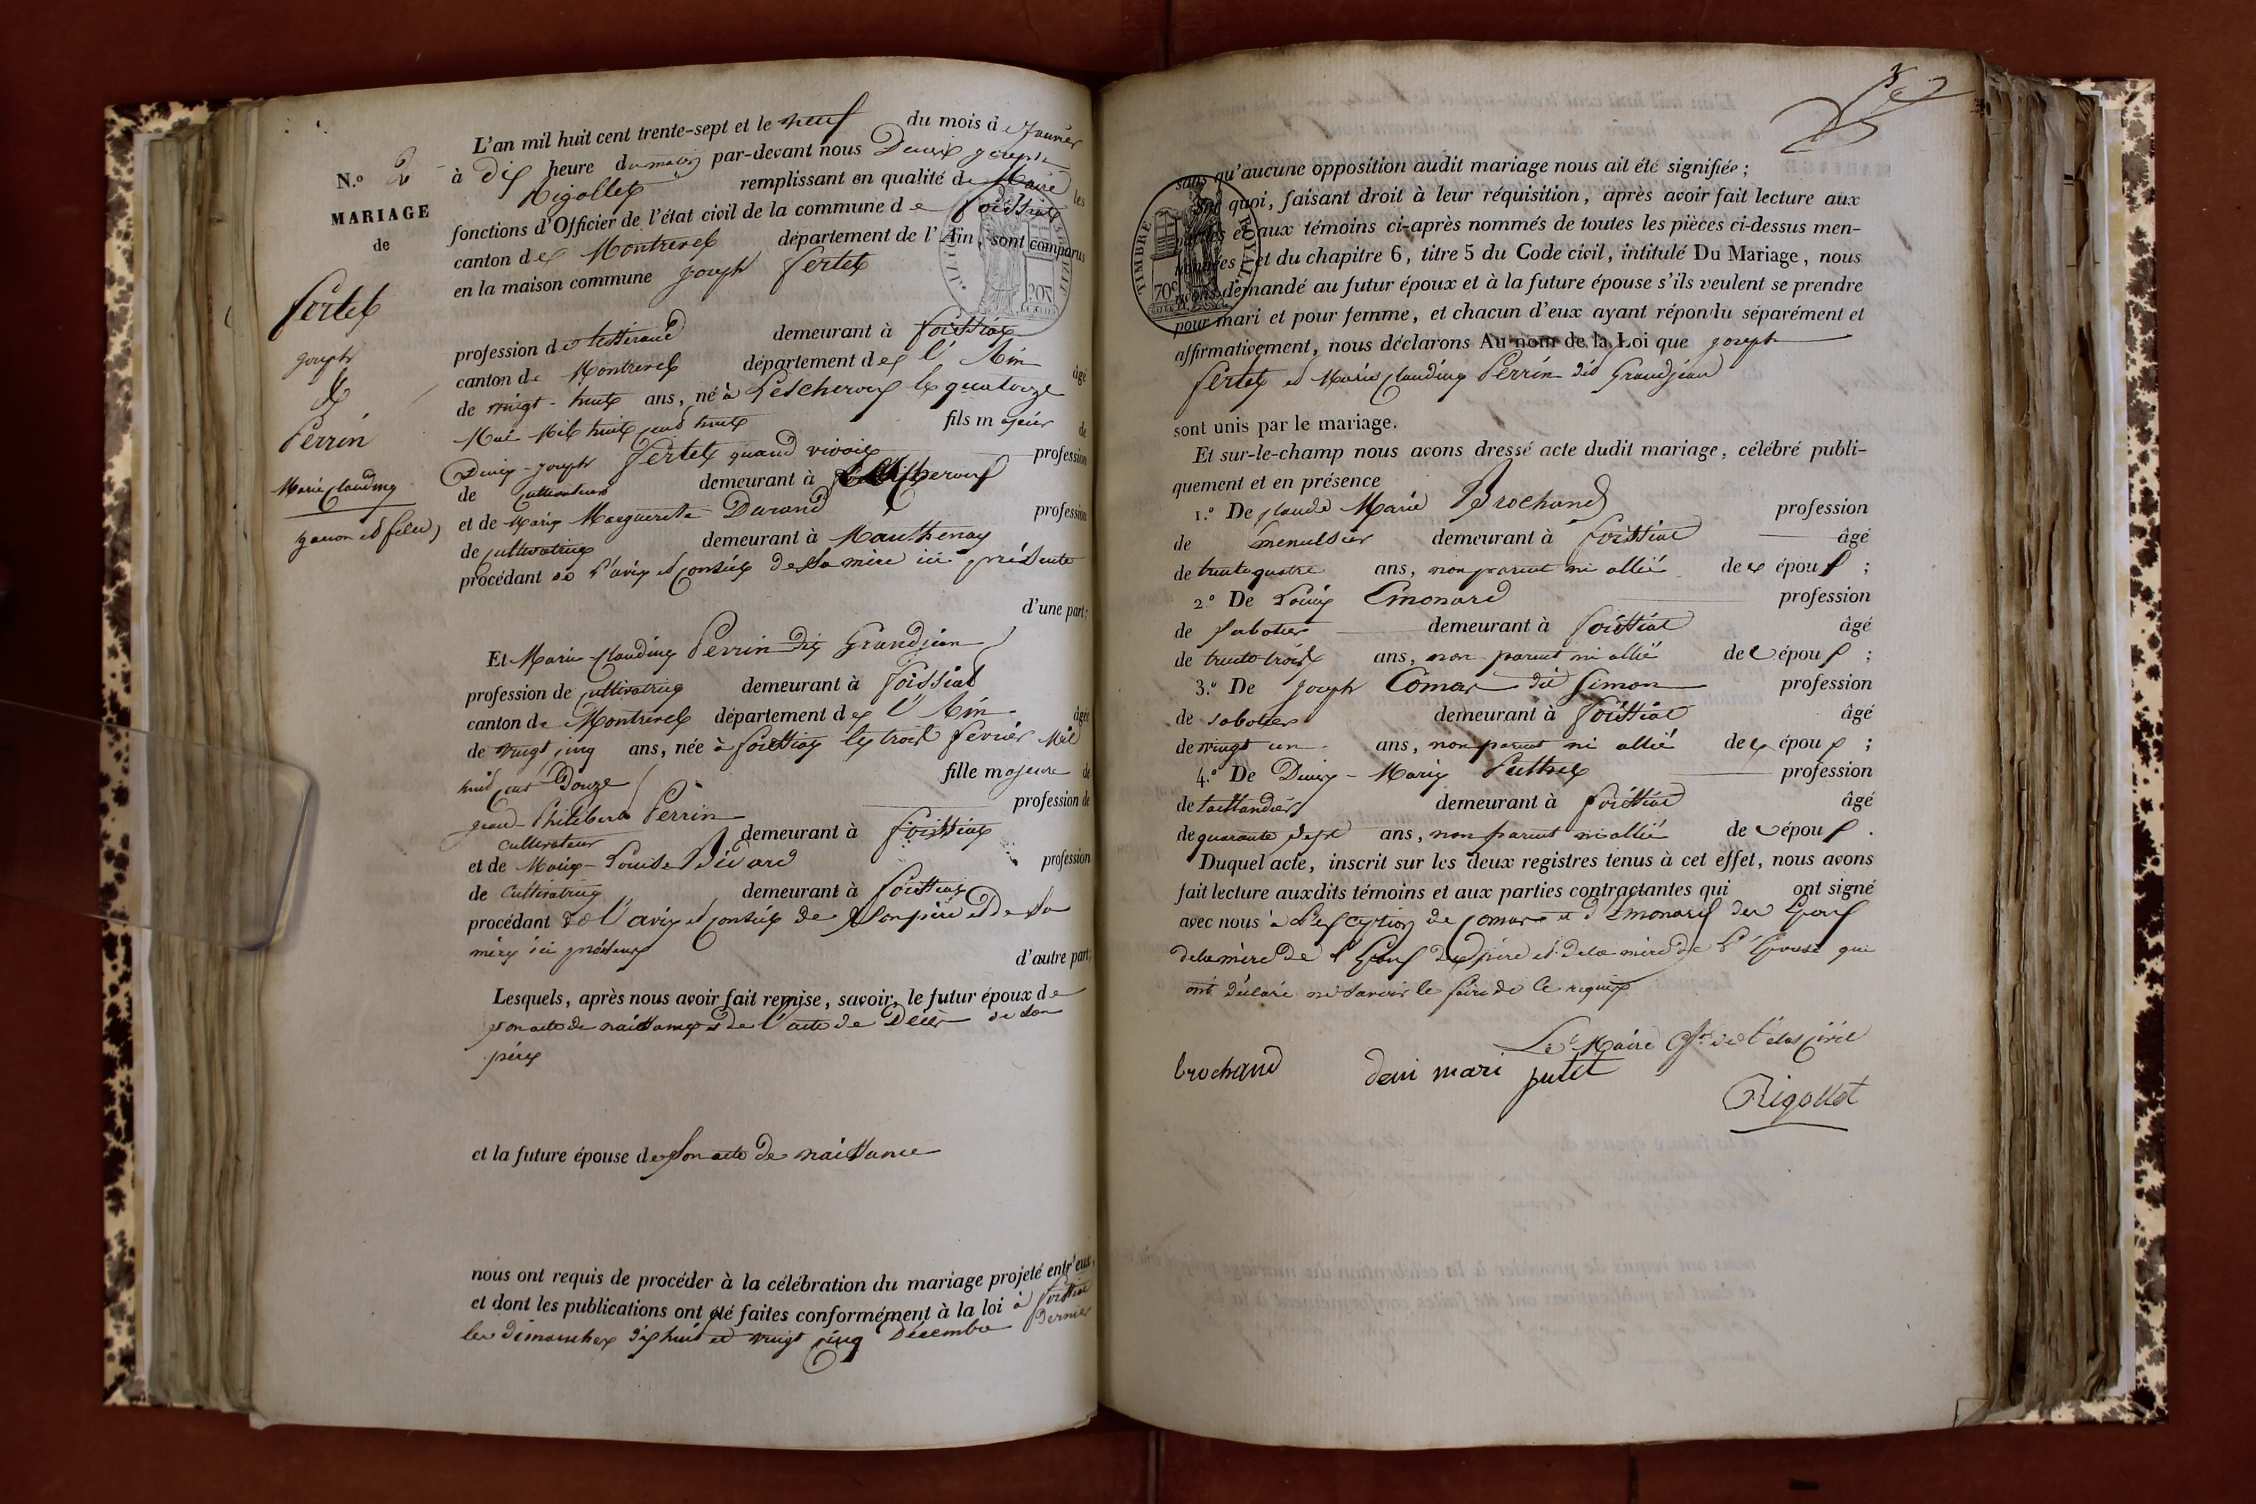 N.º 2
MARIAGE
de
Fertet
joseph
&
Perrin
Marie Claudine
garçon et fille
L'an mil huit cent trente-sept et le neuf du mois de Janvier
à Dix heure du matin par-devant nous Denis joseph
Rigollet remplissant en qualité de Maire les
fonctions d'Officier de l'état civil de la commune de foissiat
canton de Montrevel département de l'Ain, sont comparus
en la maison commune joseph fertet
profession de tisserand demeurant à foissiat
canton de Montrevel département de l' Ain âgé
de vingt-huit ans, né à Lescheroux le quatorze
Mai Mil huit cent huit fils majeur de
Denis-joseph Fertet quand vivait profession
de Cultivateur demeurant à Lescheroux
et de Marie Marguerite Durand profession
de cultivatrice demeurant à Mantenay
procédant de l'avis et conseil de sa mère ici présente
d'une part;
Et Marie Claudine Perrin dit Grandjean
profession de cultivatrice demeurant à Foissiat
canton de Montrevel département de l' Ain âgée
de vingt cinq ans, née à foissiat le trois février Mil
huit cent Douze fille majeure de
jean-Philibert Perrin profession de
cultivateur demeurant à foissiat
et de Marie-Louise profession
de Cultivatrice demeurant à foissiat
procédant de l'avis et conseil de son père et de sa
mère ici présents d'autre part;
Lesquels, après nous avoir fait remise, savoir, le futur époux de
son acte de naissance et de l'acte de Décès de son
père
et la future épouse de son acte de naissance
nous ont requis de procéder à la célébration du mariage projeté entr'eux,
et dont les publications ont été faites conformément à la loi à foissiat
les dimanches dix huit et vingt cinq Décembre dernier
TIMBRE ROYAL
70c
sans qu'aucune opposition audit mariage nous ait été signifiée;
Sur quoi, faisant droit à leur réquisition, après avoir fait lecture aux
parties et aux témoins ci-après nommés de toutes les pièces ci-dessus men-
tionnées et du chapitre 6, titre 5 du Code civil, intitulé Du Mariage, nous
avons demandé au futur époux et à la future épouse s'ils veulent se prendre
pour mari et pour femme, et chacun d'eux ayant répondu séparément et
affirmativement, nous déclarons Au nom de la Loi que joseph
fertet et Marie Claudine Perrin dit Grandjean
sont unis par le mariage.
Et sur-le-champ nous avons dressé acte dudit mariage, célébré publi-
quement et en présence
1.º De Claude Marie Brochand profession
de menuisier demeurant à foissiat âgé
de trente quatre ans, non parent ni allié des époux ;
2.º De Louis Emonard profession
de sabotier demeurant à foissiat âgé
de trente trois ans, non parent ni allié des époux ;
3.º De joseph Comas dit Simon profession
de sabotier demeurant à foissiat âgé
de vingt un ans, non parent ni allié des époux ;
4.º De Denis-Marie Puthet profession
de taillandier demeurant à foissiat âgé
de quarante sept ans, non parent ni allié des époux .
Duquel acte, inscrit sur les deux registres tenus à cet effet, nous avons
fait lecture auxdits témoins et aux parties contractantes qui ont signé
avec nous à l'exception de Comas et d'Emonard des Epoux
de la mère de l'Epoux du père et de la mère de l'Epouse qui
ont déclaré ne savoir le faire de ce requis
Le Maire de l'état civil
brochand deni mari putet
Rigollet